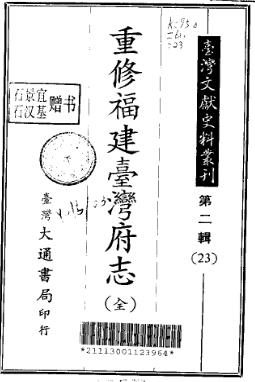 臺灣文獻史料叢刊
第二輯
(23)
重修福建臺灣府志
(全)
石景宜
石汉基
赠书
臺灣大通書局印行
*21113001123964*